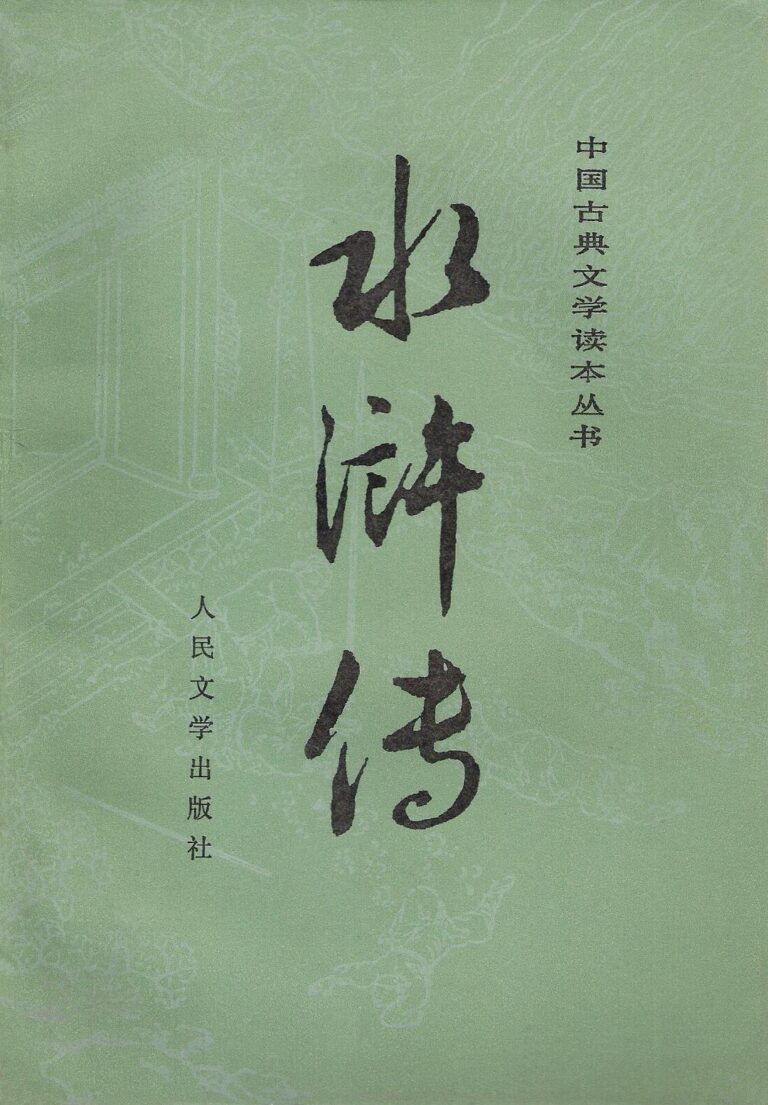 中国古典文学读本丛书
水浒传
人民文学出版社